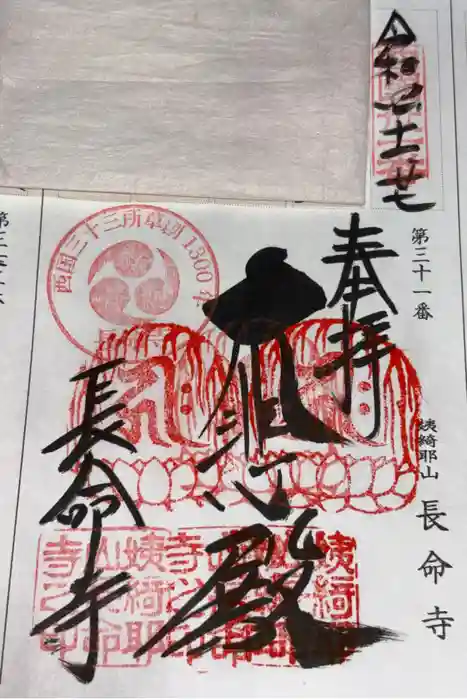 令和
廿七
第三十一番
姨綺耶山 長命寺
奉拝
大悲殿
長命寺
西国三十三所草創1300年
姨綺耶山長命寺之印
姨綺耶山長命寺之印